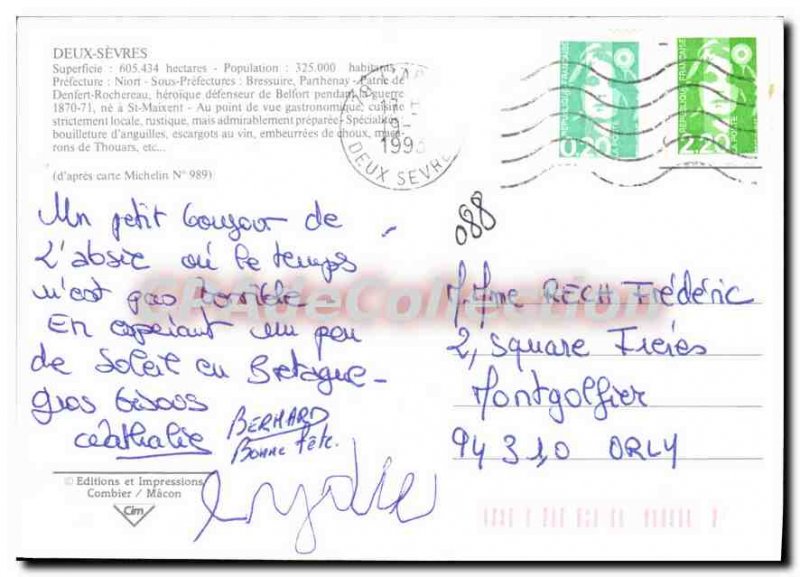 DEUX-SÈVRES
Superficie : 605.434 hectares - Population : 325.000 habitants
Préfecture : Niort - Sous-Préfectures : Bressuire, Parthenay - Patrie de
Denfert-Rochereau, héroïque défenseur de Belfort pendant la guerre
1870-71, né à St-Maixent - Au point de vue gastronomique, cuisine
strictement locale, rustique, mais admirablement préparée - Spécialités
bouilleture d'anguilles, escargots au vin, embeurrées de choux,
rons de Thouars, etc...
(d'après carte Michelin N° 989)
DEUX SEVRES
REPUBLIQUE FRANÇAISE
0,20
LA POSTE
REPUBLIQUE FRANÇAISE
2,20
LA POSTE
088
Un petit bonjour de
L'absie où le temps
n'est pas terrible
En espérant un peu
de Soleil en Bretagne -
gros bisous
Nathalie
BERNARD
BONNE fête.
Lydie
M. Mme RECH Frédéric
2, square Frères
Montgolfier
94310 ORLY
CPAdeCollection
© Editions et Impressions
Combier / Mâcon
Cim